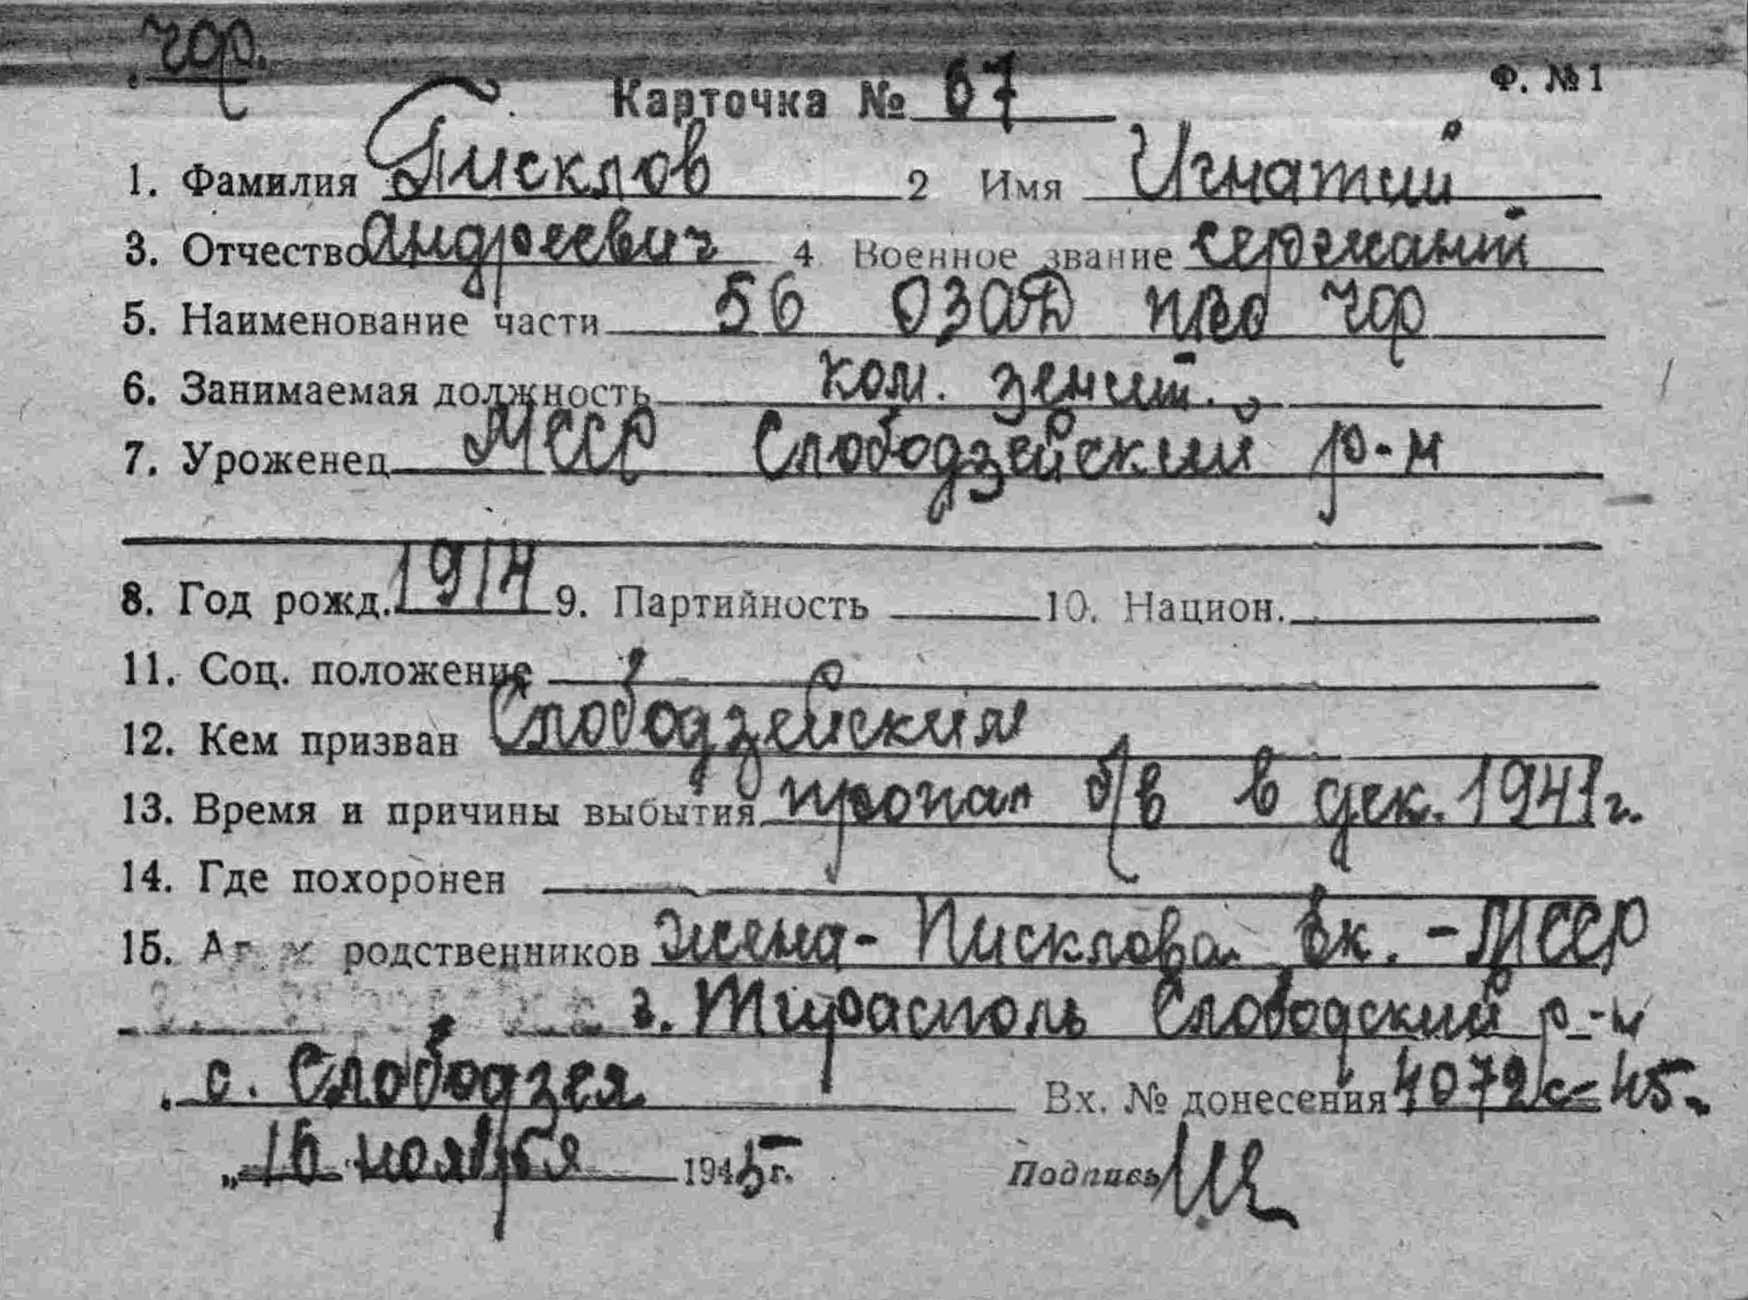 чф.
Карточка № 67 Ф. № 1
1. Фамилия Писклов 2 Имя Игнатий
3. Отчество Андреевич 4 Военное звание сержант
5. Наименование части 56 ОЗАД ПВО ЧФ
6. Занимаемая должность ком. зенит.
7. Уроженец МССР Слободзейский р-н
8. Год рожд. 1914 9. Партийность 10. Национ.
11. Соц. положение
12. Кем призван Слободзейским
13. Время и причины выбытия пропал б/в в дек. 1941 г.
14. Где похоронен
15. родственников жена - Писклова Ек. - МССР
г. Тирасполь Слободский р-н
с. Слободзея Вх. № донесения 4072с-45
„16 ноября 1945 г. Подпись